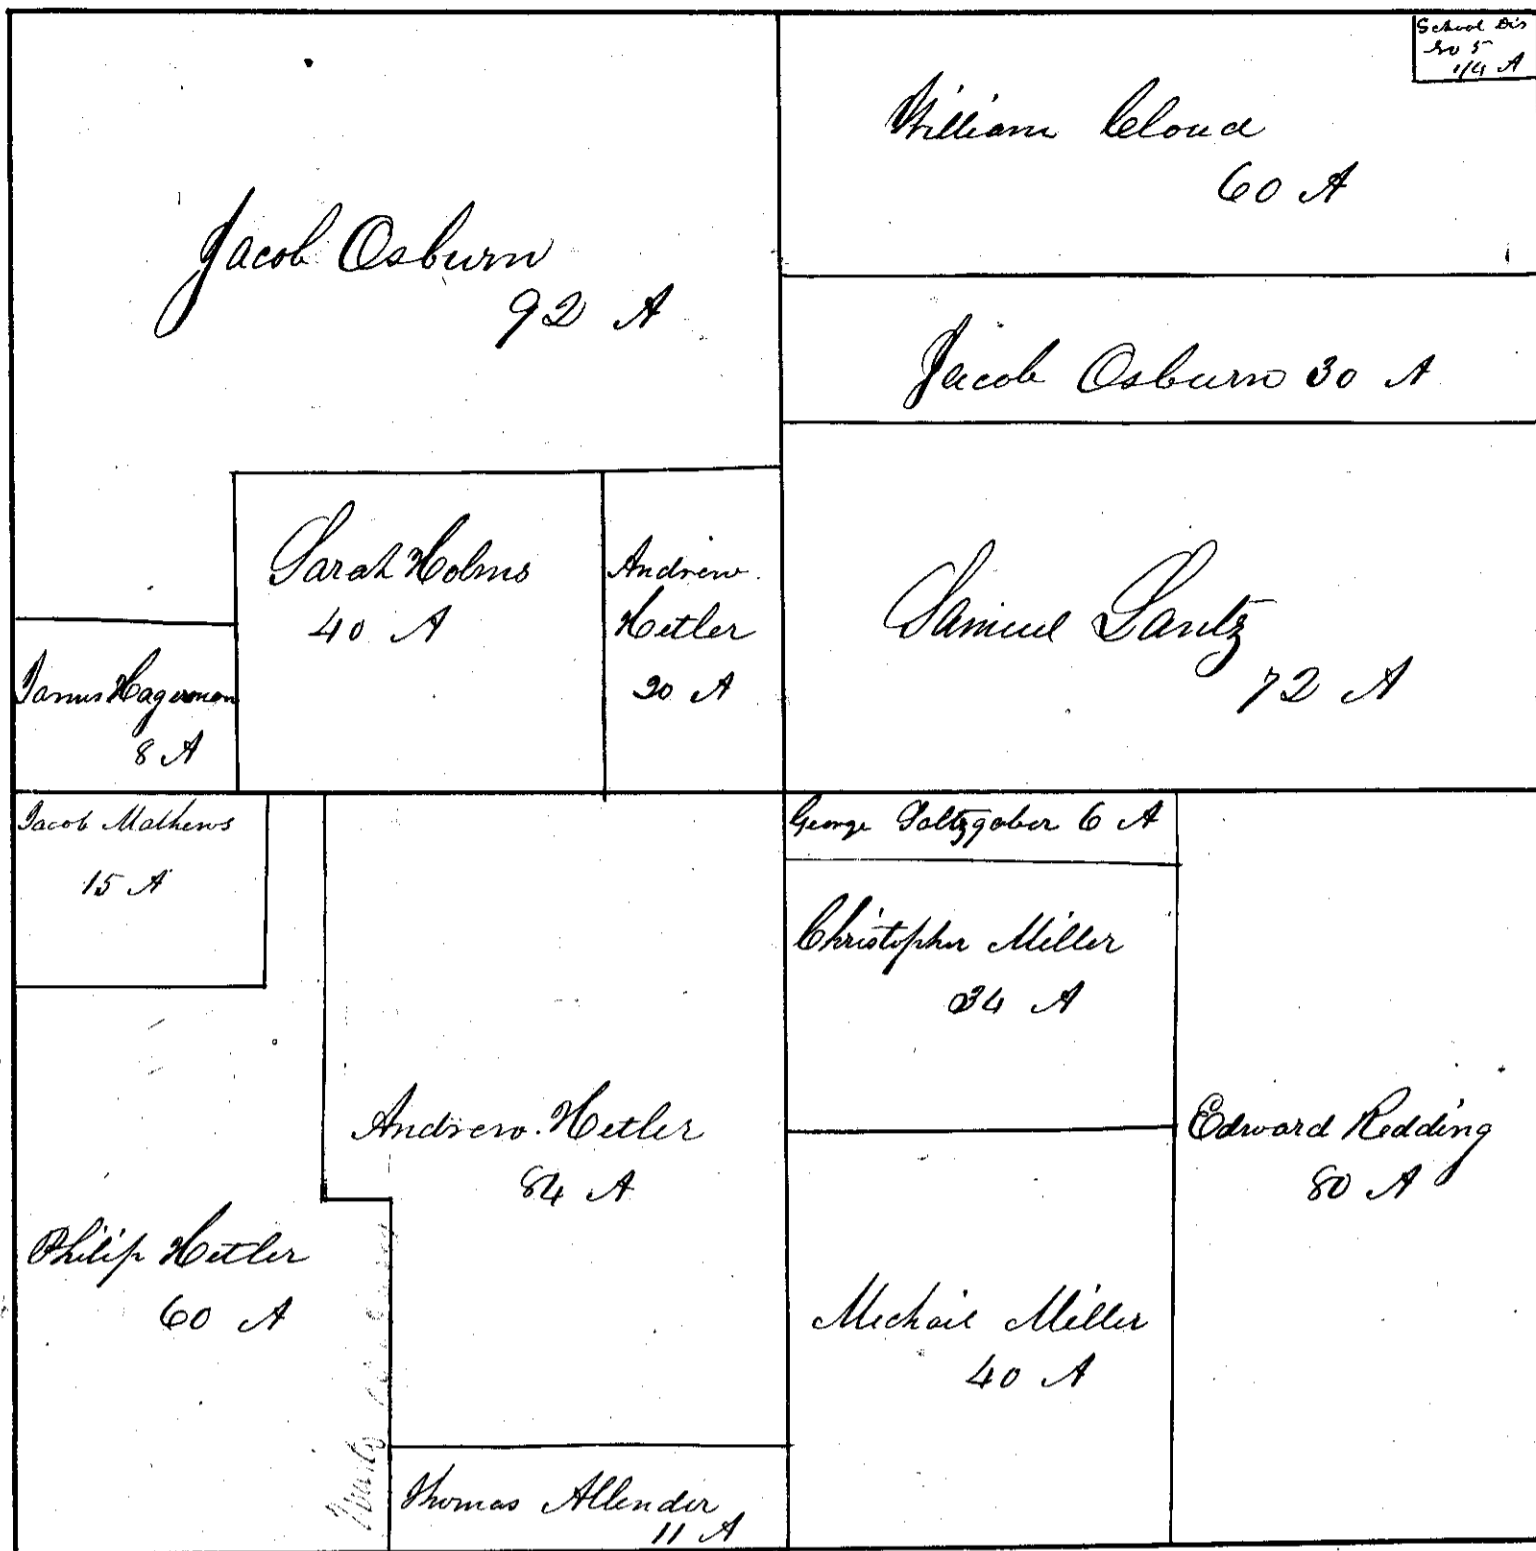 School Dis
No 5
1/4 A
William Cloud
60 A
Jacob Osburn
92 A
Jacob Osburn 30 A
Sarah Holms
40 A
Andrew
Hetler
20 A
Samuel Lantz
72 A
James Hagerman
8 A
Jacob Mathews
15 A
George Saltzgaber 6 A
Christopher Miller
34 A
Andrew Hetler
84 A
Edward Redding
80 A
Philip Hetler
60 A
Michail Miller
40 A
Thomas Allender
11 A